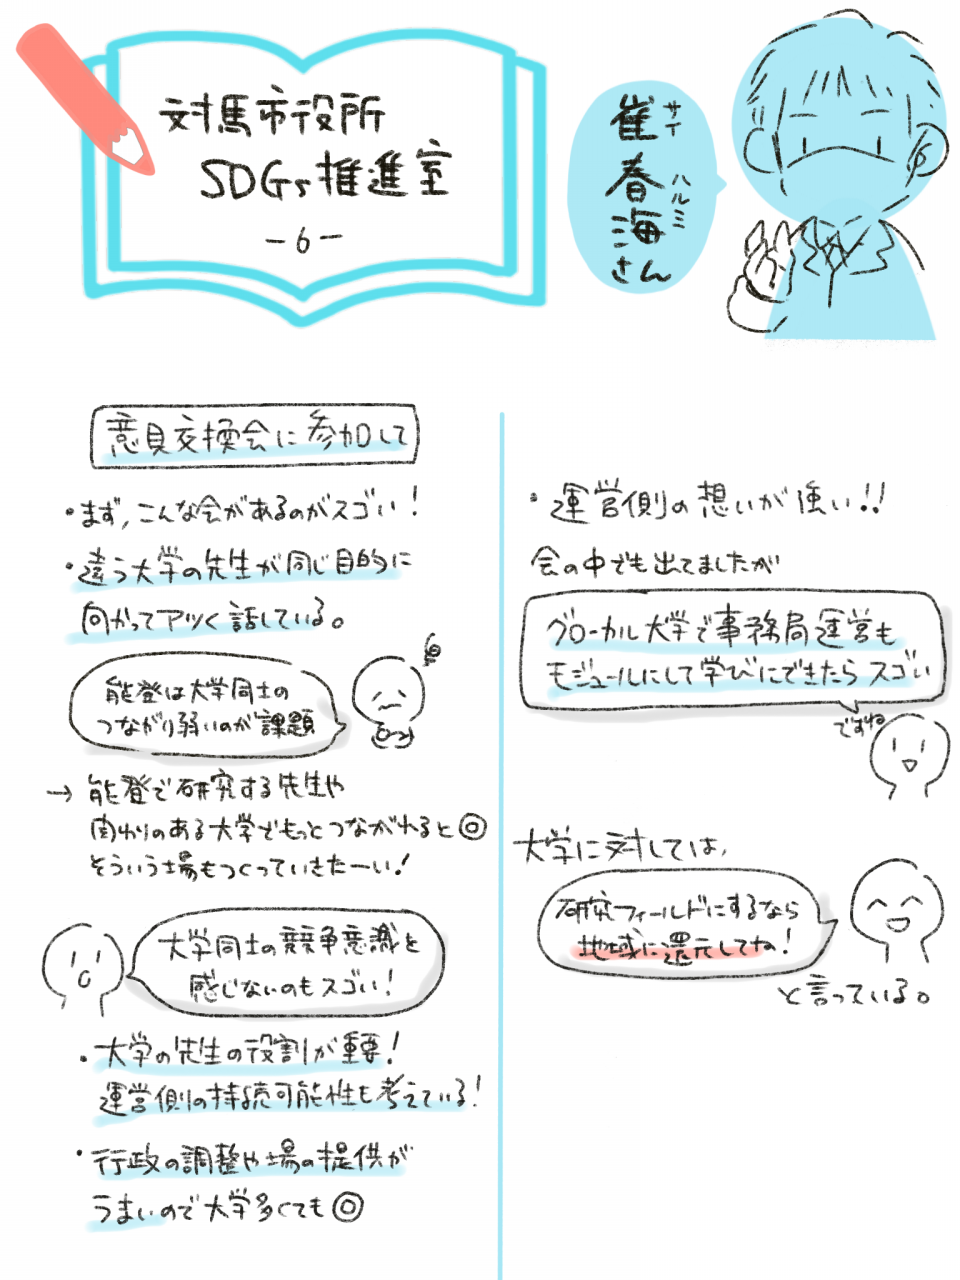 対馬市役所
SDGs推進室
-6-
崔春海さん
サイ
ハルミ
意見交換会に参加して
・まず、こんな会があるのがスゴい!
・違う大学の先生が同じ目的に
向かってアツく話している。
能登は大学同士の
つながり弱いのが課題
→ 能登で研究する先生や
関わりのある大学でもっとつながれると◎
そういう場もつくっていきたーい!
大学同士の競争意識を
感じないのもスゴい!
・大学の先生の役割が重要!
運営側の持続可能性も考えている!
・行政の調整や場の提供が
うまいので大学多くても◎
・運営側の想いが強い!!
会の中でも出てましたが
グローカル大学で事務局運営も
モジュールにして学びにできたらスゴい
ですね
大学に対しては、
研究フィールドにするなら
地域に還元してね!
と言っている。